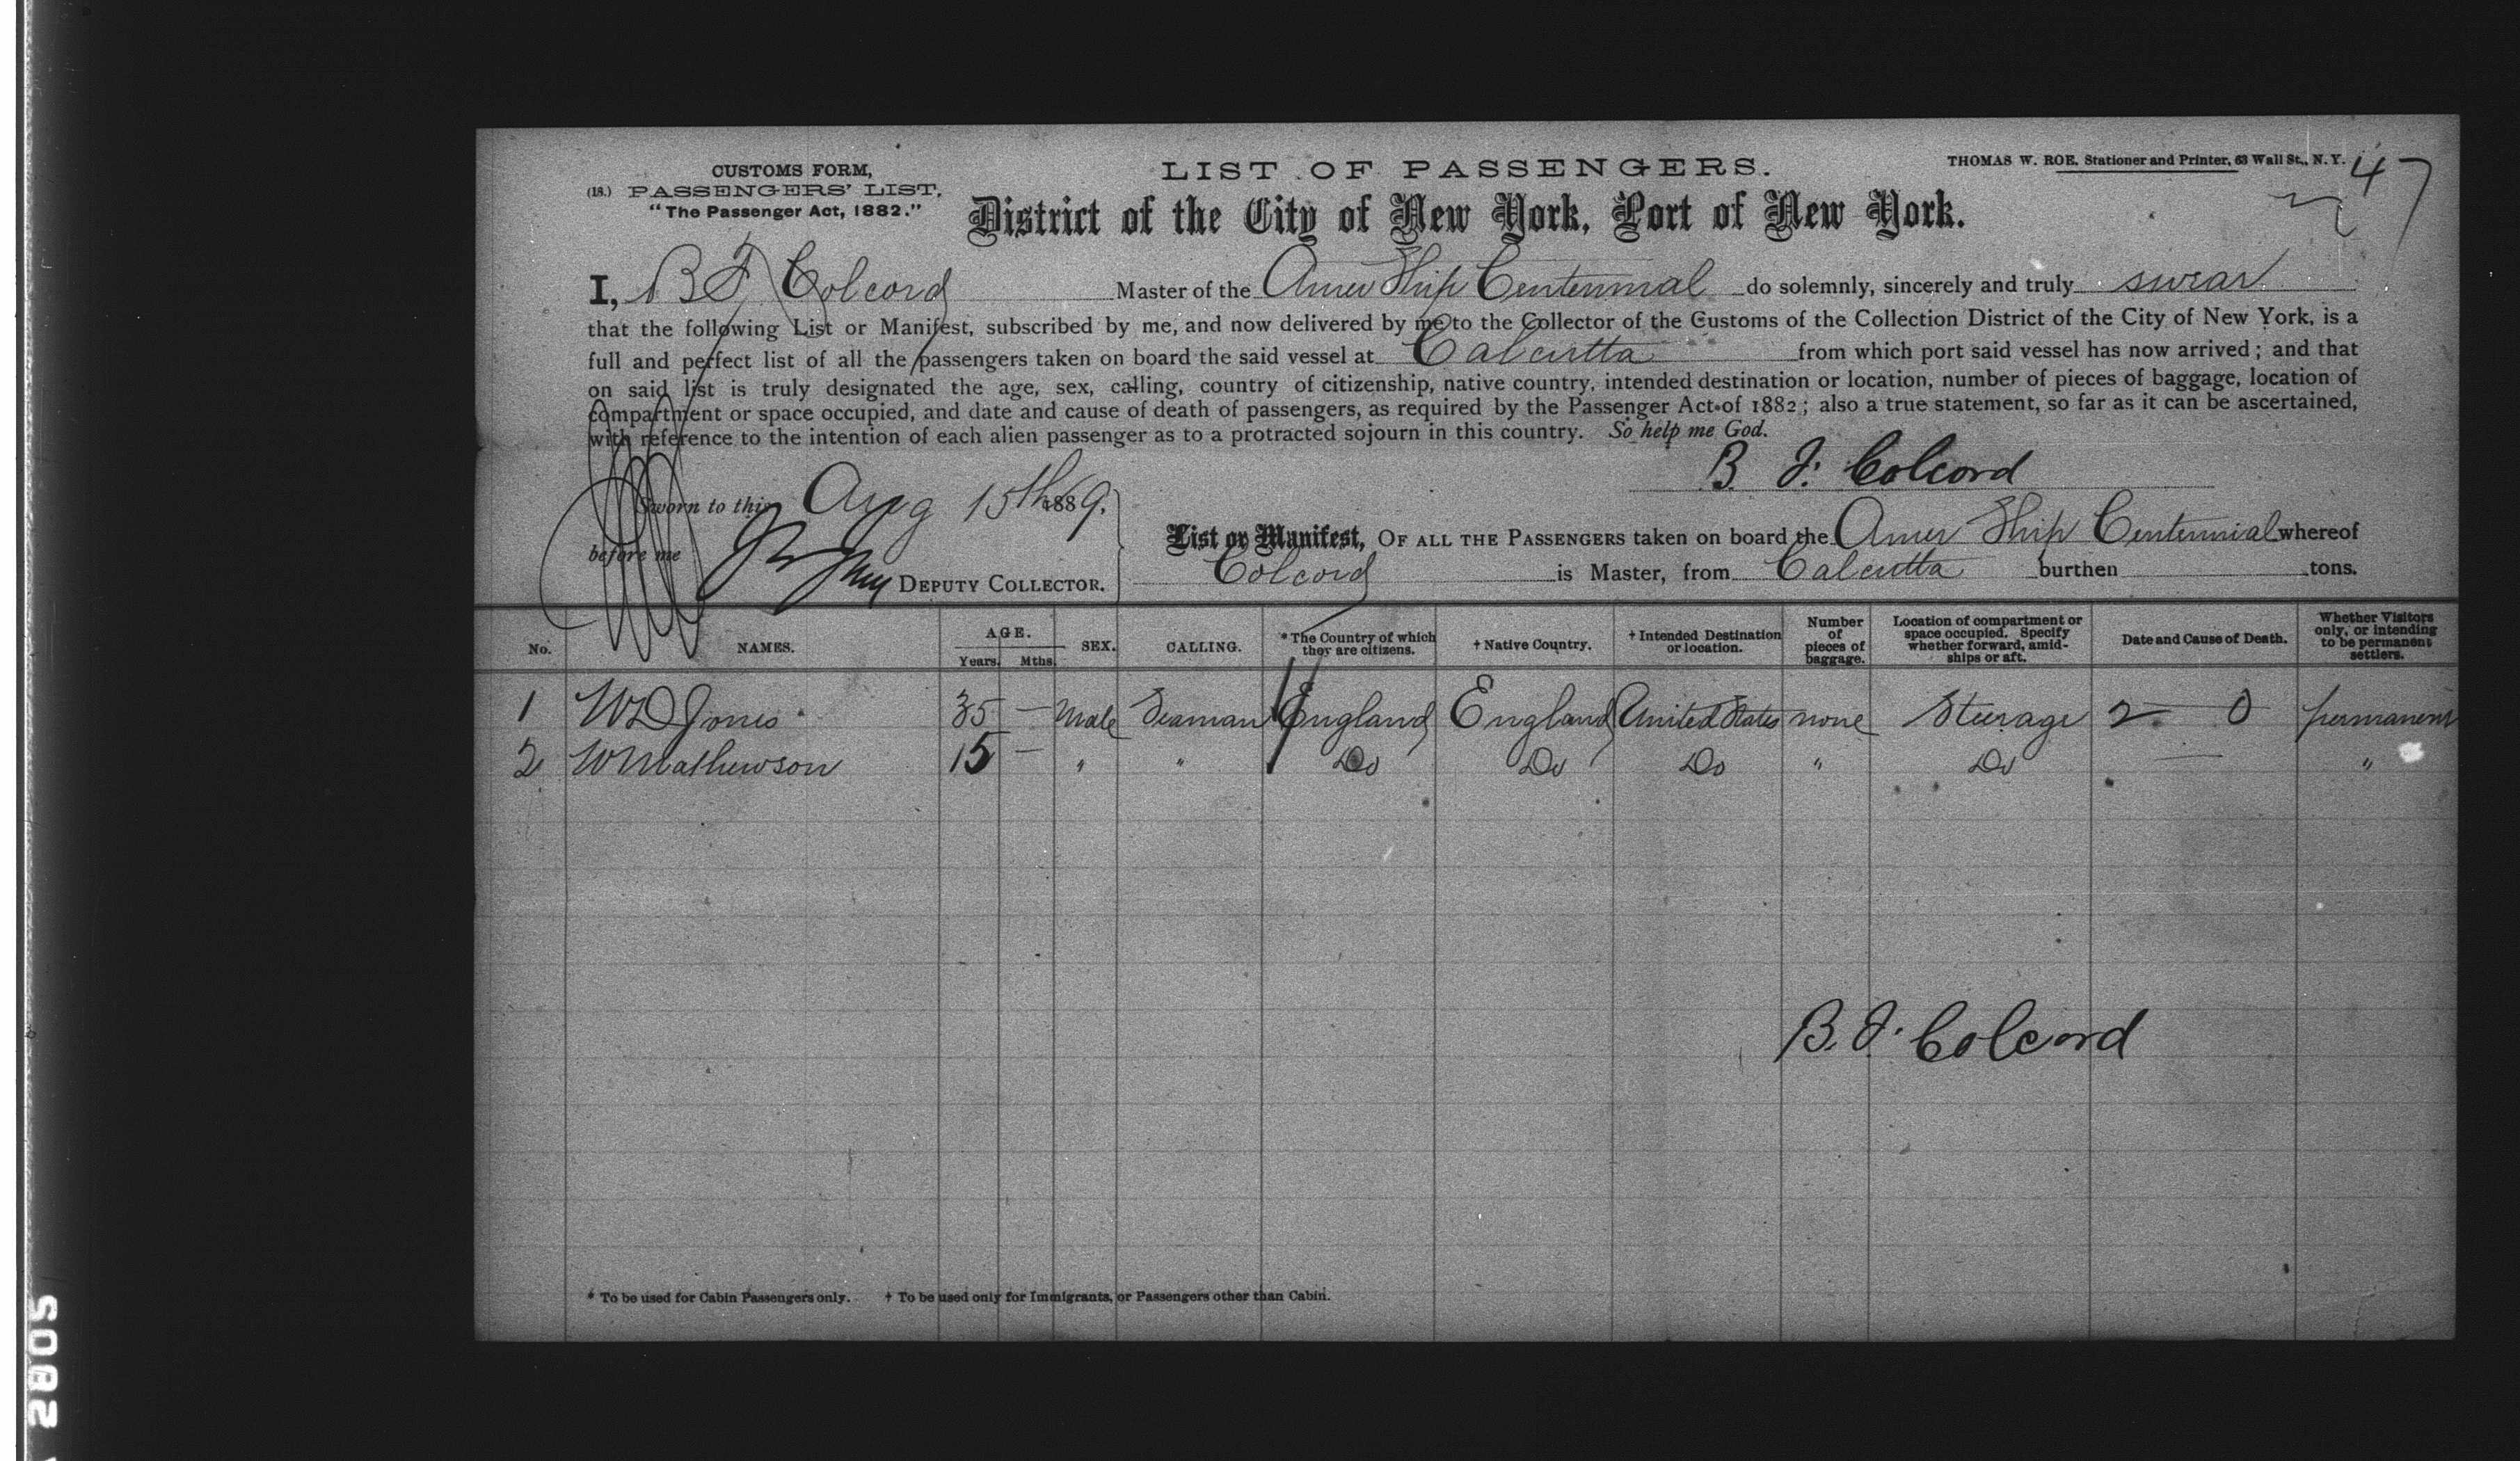 CUSTOMS FORM,
(18.) PASSENGERS' LIST.
"The Passenger Act, 1882."
LIST OF PASSENGERS.
THOMAS W. ROE, Stationer and Printer, 63 Wall St., N. Y.
47
District of the City of New York, Port of New York.
I, B F Colcord Master of the Amer Ship Centennial do solemnly, sincerely and truly swear
that the following List or Manifest, subscribed by me, and now delivered by me to the Collector of the Customs of the Collection District of the City of New York, is a
full and perfect list of all the passengers taken on board the said vessel at Calcutta from which port said vessel has now arrived; and that
on said list is truly designated the age, sex, calling, country of citizenship, native country, intended destination or location, number of pieces of baggage, location of
compartment or space occupied, and date and cause of death of passengers, as required by the Passenger Act of 1882; also a true statement, so far as it can be ascertained,
with reference to the intention of each alien passenger as to a protracted sojourn in this country. So help me God.
B. F. Colcord
Sworn to this Aug 15th 1889.
before me
DEPUTY COLLECTOR.
List or Manifest, OF ALL THE PASSENGERS taken on board the Amer Ship Centennial whereof
Colcord is Master, from Calcutta burthen tons.
No. NAMES. AGE. Years. Mths. SEX. CALLING. * The Country of which they are citizens. † Native Country. † Intended Destination or location. Number of pieces of baggage. Location of compartment or space occupied. Specify whether forward, amidships or aft. Date and Cause of Death. Whether Visitors only, or intending to be permanent settlers.
1 W D Jones 35 — Male Seaman England England United States none Steerage 2 — 0 permanent
2 W Mathewson 15 — " " Do Do Do " Do — "
B. F. Colcord
* To be used for Cabin Passengers only. † To be used only for Immigrants, or Passengers other than Cabin.